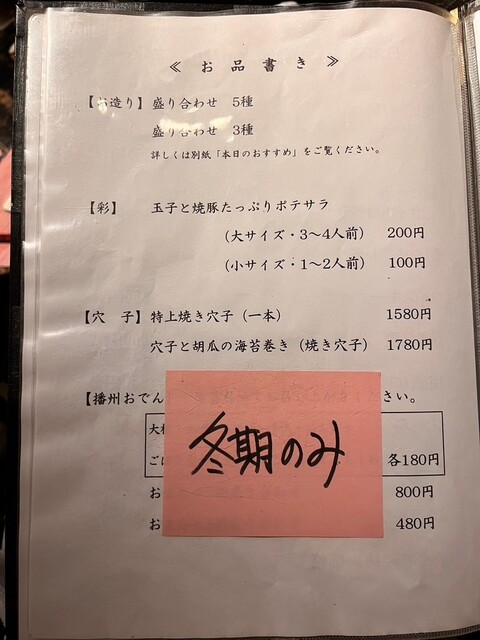 ≪ お 品 書 き ≫
【お造り】盛り合わせ 5種
盛り合わせ 3種
詳しくは別紙「本日のおすすめ」をご覧ください。
【彩】 玉子と焼豚たっぷりポテサラ
（大サイズ・3～4人前） 200円
（小サイズ・1～2人前） 100円
【穴 子】特上焼き穴子（一本） 1580円
穴子と胡瓜の海苔巻き（焼き穴子） 1780円
【播州おでん さい。
大
ご 各180円
お 800円
お 480円
冬期のみ